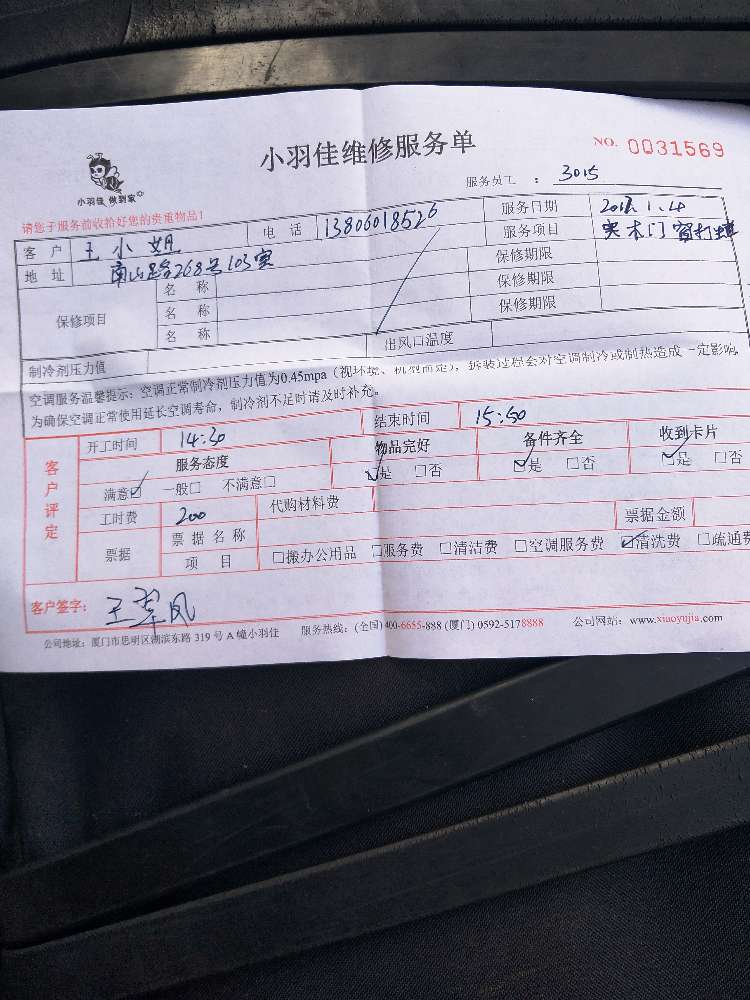 小羽佳维修服务单
NO. 0031569
小羽佳 做到家
服务员工 : 3015
请您于服务前收拾好您的贵重物品!
客户 王小姐 电话 13806018526 服务日期 1.4
地址 南山路268号103室 服务项目 实木门窗打蜡
保修项目 名称 保修期限
名称 保修期限
名称 保修期限
制冷剂压力值 出风口温度
空调服务温馨提示: 空调正常制冷剂压力值为0.45mpa (视环境、机型而定), 拆装过程会对空调制冷或制热造成一定影响,
为确保空调正常使用延长空调寿命, 制冷剂不足时请及时补充。
客户评定
开工时间 14:30 结束时间 15:50
服务态度 物品完好 备件齐全 收到卡片
满意☑ 一般□ 不满意□ ☑是 □否 ☑是 □否 ☑是 □否
工时费 200 代购材料费
票据 票据名称 票据金额
项目 □搬办公用品 □服务费 □清洁费 □空调服务费 ☑清洗费 □疏通费
客户签字: 王翠凤
公司地址: 厦门市思明区湖滨东路 319 号 A 幢小羽佳 服务热线: (全国) 400-6655-888 (厦门) 0592-5178888 公司网站: www.xiaoyujia.com